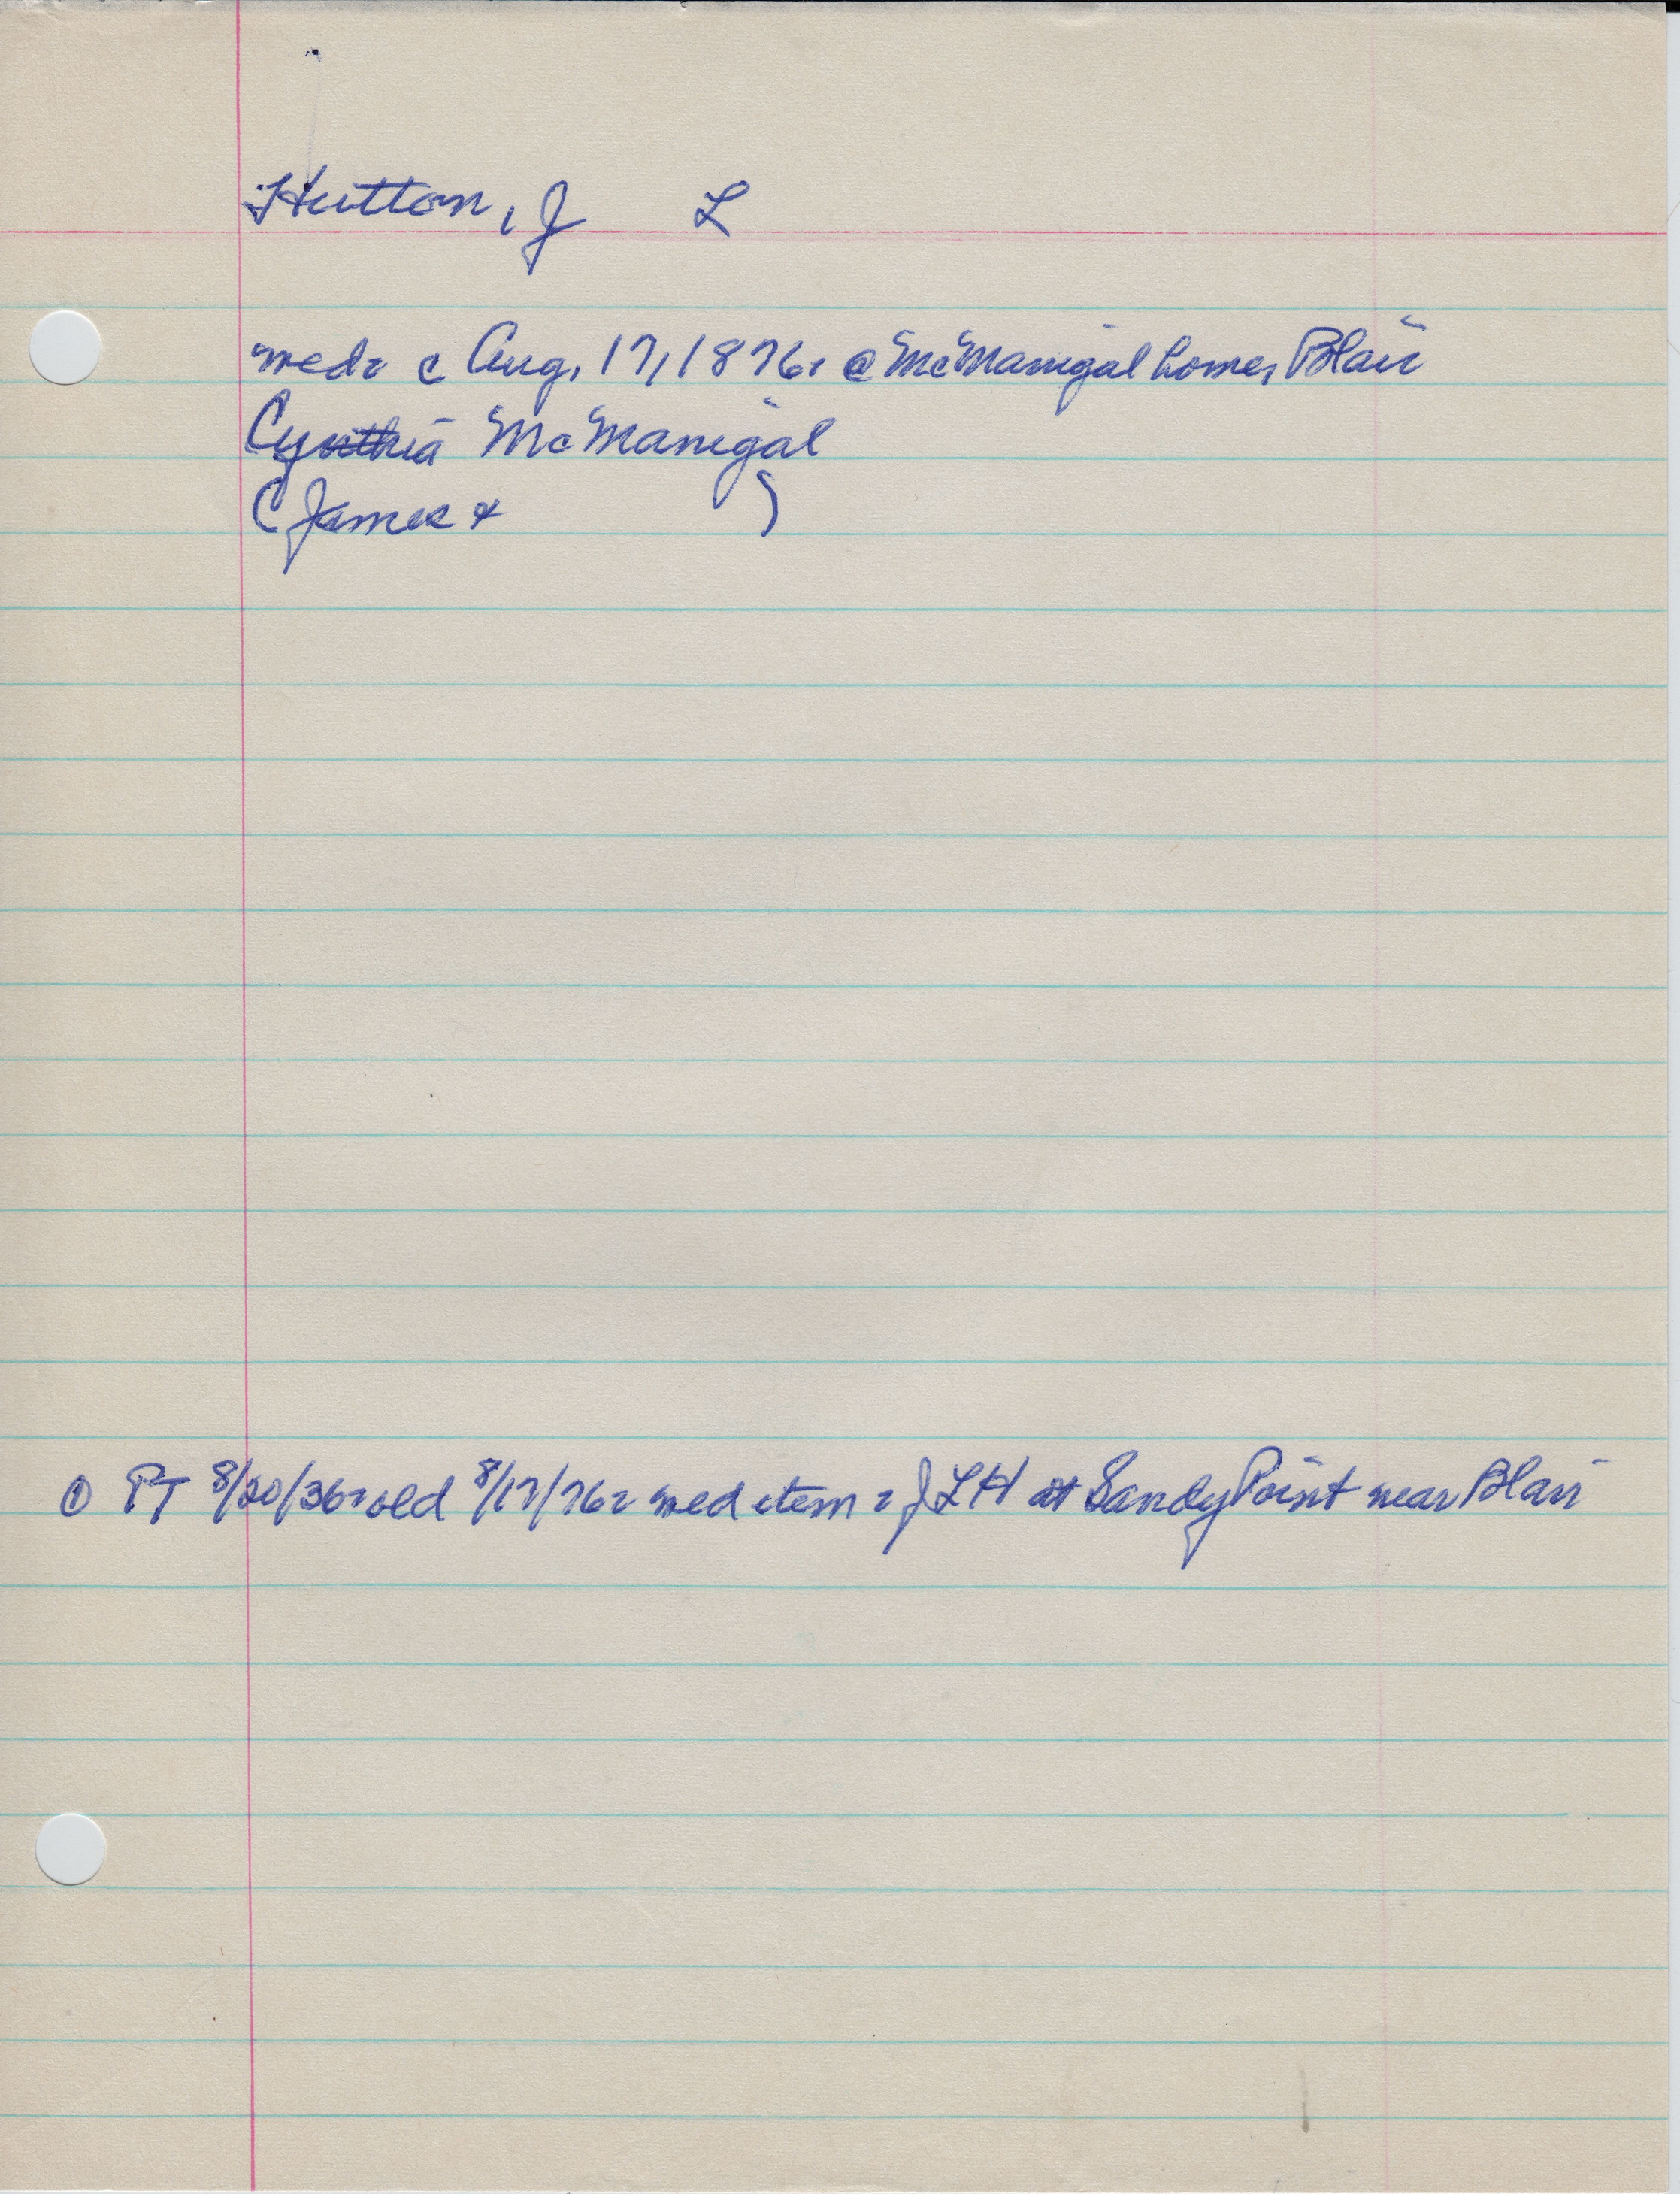 Hutton, J L
wed: c Aug, 17, 1876: @ McManigal home, Blair
Cynthia McManigal
(James & )
① PT 8/20/36: old 8/17/76: wed item: JLH at Sandy Point near Blair